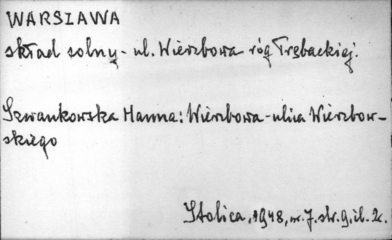 WARSZAWA
skład solny - ul. Wierzbowa róg Trębackiej.
Szwankowska Hanna: Wierzbowa - ulica Wierzbow-
skiego
Stolica, 1948, nr. 7. str. 9, il. 2.